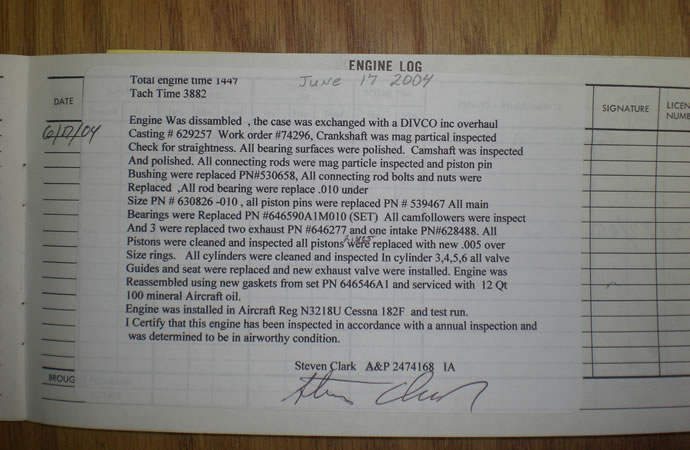 ENGINE LOG
Total engine time 1447 June 17 2004
Tach Time 3882
DATE
SIGNATURE
LICEN
NUMBE
6/17/04
Engine Was dissambled , the case was exchanged with a DIVCO inc overhaul
Casting # 629257 Work order #74296, Crankshaft was mag partical inspected
Check for straightness. All bearing surfaces were polished. Camshaft was inspected
And polished. All connecting rods were mag particle inspected and piston pin
Bushing were replaced PN#530658, All connecting rod bolts and nuts were
Replaced ,All rod bearing were replace .010 under
Size PN # 630826 -010 , all piston pins were replaced PN # 539467 All main
Bearings were Replaced PN #646590A1M010 (SET) All camfollowers were inspect
And 3 were replaced two exhaust PN #646277 and one intake PN#628488. All
Pistons were cleaned and inspected all pistons were replaced with new .005 over
Size rings. All cylinders were cleaned and inspected In cylinder 3,4,5,6 all valve
Guides and seat were replaced and new exhaust valve were installed. Engine was
Reassembled using new gaskets from set PN 646546A1 and serviced with 12 Qt
100 mineral Aircraft oil.
Engine was installed in Aircraft Reg N3218U Cessna 182F and test run.
I Certify that this engine has been inspected in accordance with a annual inspection and
was determined to be in airworthy condition.
Steven Clark A&P 2474168 IA
Steven Clark
BROUG